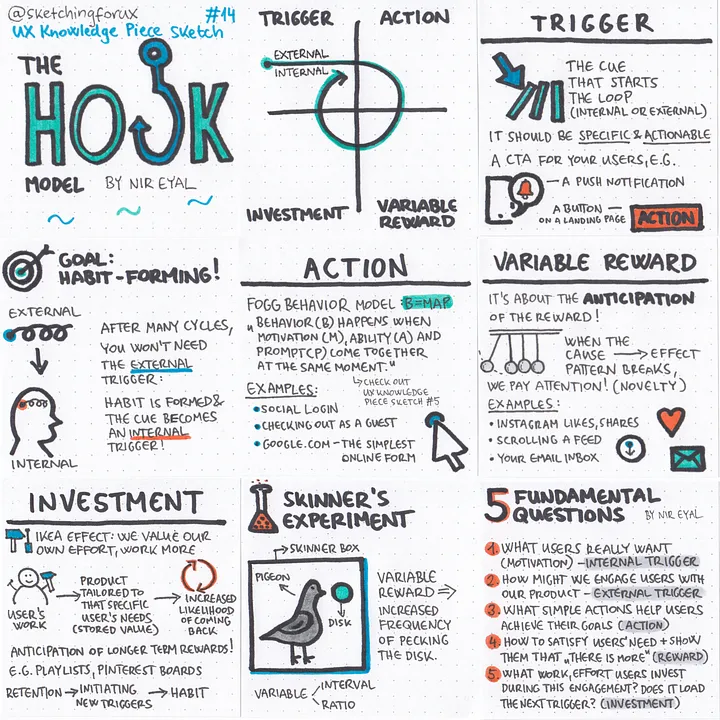 @sketchingforux
#14
UX Knowledge Piece Sketch
THE
HOOK
MODEL
BY NIR EYAL
TRIGGER
ACTION
EXTERNAL
INTERNAL
INVESTMENT
VARIABLE
REWARD
TRIGGER
THE CUE
THAT STARTS
THE LOOP
(INTERNAL OR EXTERNAL)
IT SHOULD BE SPECIFIC & ACTIONABLE
A CTA FOR YOUR USERS, E.G.
– A PUSH NOTIFICATION
A BUTTON –
ON A LANDING PAGE
ACTION
GOAL:
HABIT-FORMING!
EXTERNAL
AFTER MANY CYCLES,
YOU WON'T NEED
THE EXTERNAL
TRIGGER:
HABIT IS FORMED &
THE CUE BECOMES
AN INTERNAL
TRIGGER!
INTERNAL
ACTION
FOGG BEHAVIOR MODEL: B=MAP
„BEHAVIOR (B) HAPPENS WHEN
MOTIVATION (M), ABILITY (A) AND
PROMPT (P) COME TOGETHER
AT THE SAME MOMENT."
CHECK OUT
UX KNOWLEDGE
PIECE SKETCH #5
EXAMPLES:
• SOCIAL LOGIN
• CHECKING OUT AS A GUEST
• GOOGLE.COM – THE SIMPLEST
ONLINE FORM
VARIABLE REWARD
IT'S ABOUT THE ANTICIPATION
OF THE REWARD!
WHEN THE
CAUSE → EFFECT
PATTERN BREAKS,
WE PAY ATTENTION! (NOVELTY)
EXAMPLES:
• INSTAGRAM LIKES, SHARES
• SCROLLING A FEED
• YOUR EMAIL INBOX
INVESTMENT
IKEA EFFECT: WE VALUE OUR
OWN EFFORT, WORK MORE
USER'S
WORK
→ PRODUCT
TAILORED TO
THAT SPECIFIC
USER'S NEEDS
(STORED VALUE)
→ INCREASED
LIKELIHOOD
OF COMING
BACK
ANTICIPATION OF LONGER TERM REWARDS!
E.G. PLAYLISTS, PINTEREST BOARDS
RETENTION → INITIATING
NEW TRIGGERS
→ HABIT
SKINNER'S
EXPERIMENT
SKINNER BOX
PIGEON
DISK
VARIABLE
REWARD ⇒
INCREASED
FREQUENCY
OF PECKING
THE DISK.
VARIABLE
INTERVAL
RATIO
5 FUNDAMENTAL
QUESTIONS
BY NIR EYAL
1. WHAT USERS REALLY WANT
(MOTIVATION) – INTERNAL TRIGGER
2. HOW MIGHT WE ENGAGE USERS WITH
OUR PRODUCT – EXTERNAL TRIGGER
3. WHAT SIMPLE ACTIONS HELP USERS
ACHIEVE THEIR GOALS (ACTION)
4. HOW TO SATISFY USERS' NEED + SHOW
THEM THAT „THERE IS MORE" (REWARD)
5. WHAT WORK, EFFORT USERS INVEST
DURING THIS ENGAGEMENT? DOES IT LOAD
THE NEXT TRIGGER? (INVESTMENT)